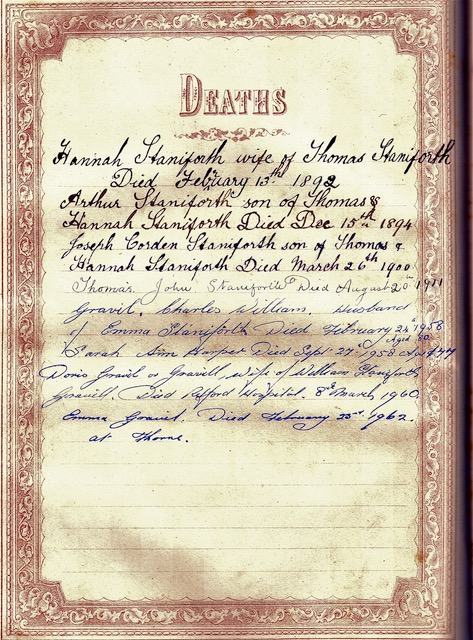 DEATHS
Hannah Staniforth wife of Thomas Staniforth
Died February 13th 1892
Arthur Staniforth son of Thomas &
Hannah Staniforth Died Dec 15th 1894
Joseph Corden Staniforth son of Thomas &
Hannah Staniforth Died March 26th 1900
Thomas John Staniforth Died August 20th 1911
Gravil, Charles William, Husband
of Emma Staniforth Died February 1956
Aged 80
Sarah Ann Harper Died Sept 27th 1958
Doris Gravil or Gravill, wife of William Staniforth
Gravill, Died Retford Hospital. 8th March 1960.
Emma Gravil. Died February 1962.
at Thorne.